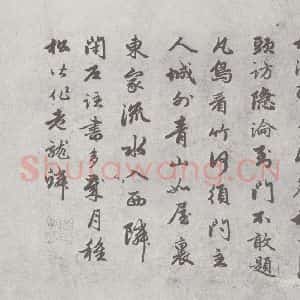 頭訪隱淪到門不敢題
凡鳥看竹何須問主
人城外青山如屋裏
東家流水入西隣
閉户著書多歲月種
松皆作老龍鱗
Shufawang.CN